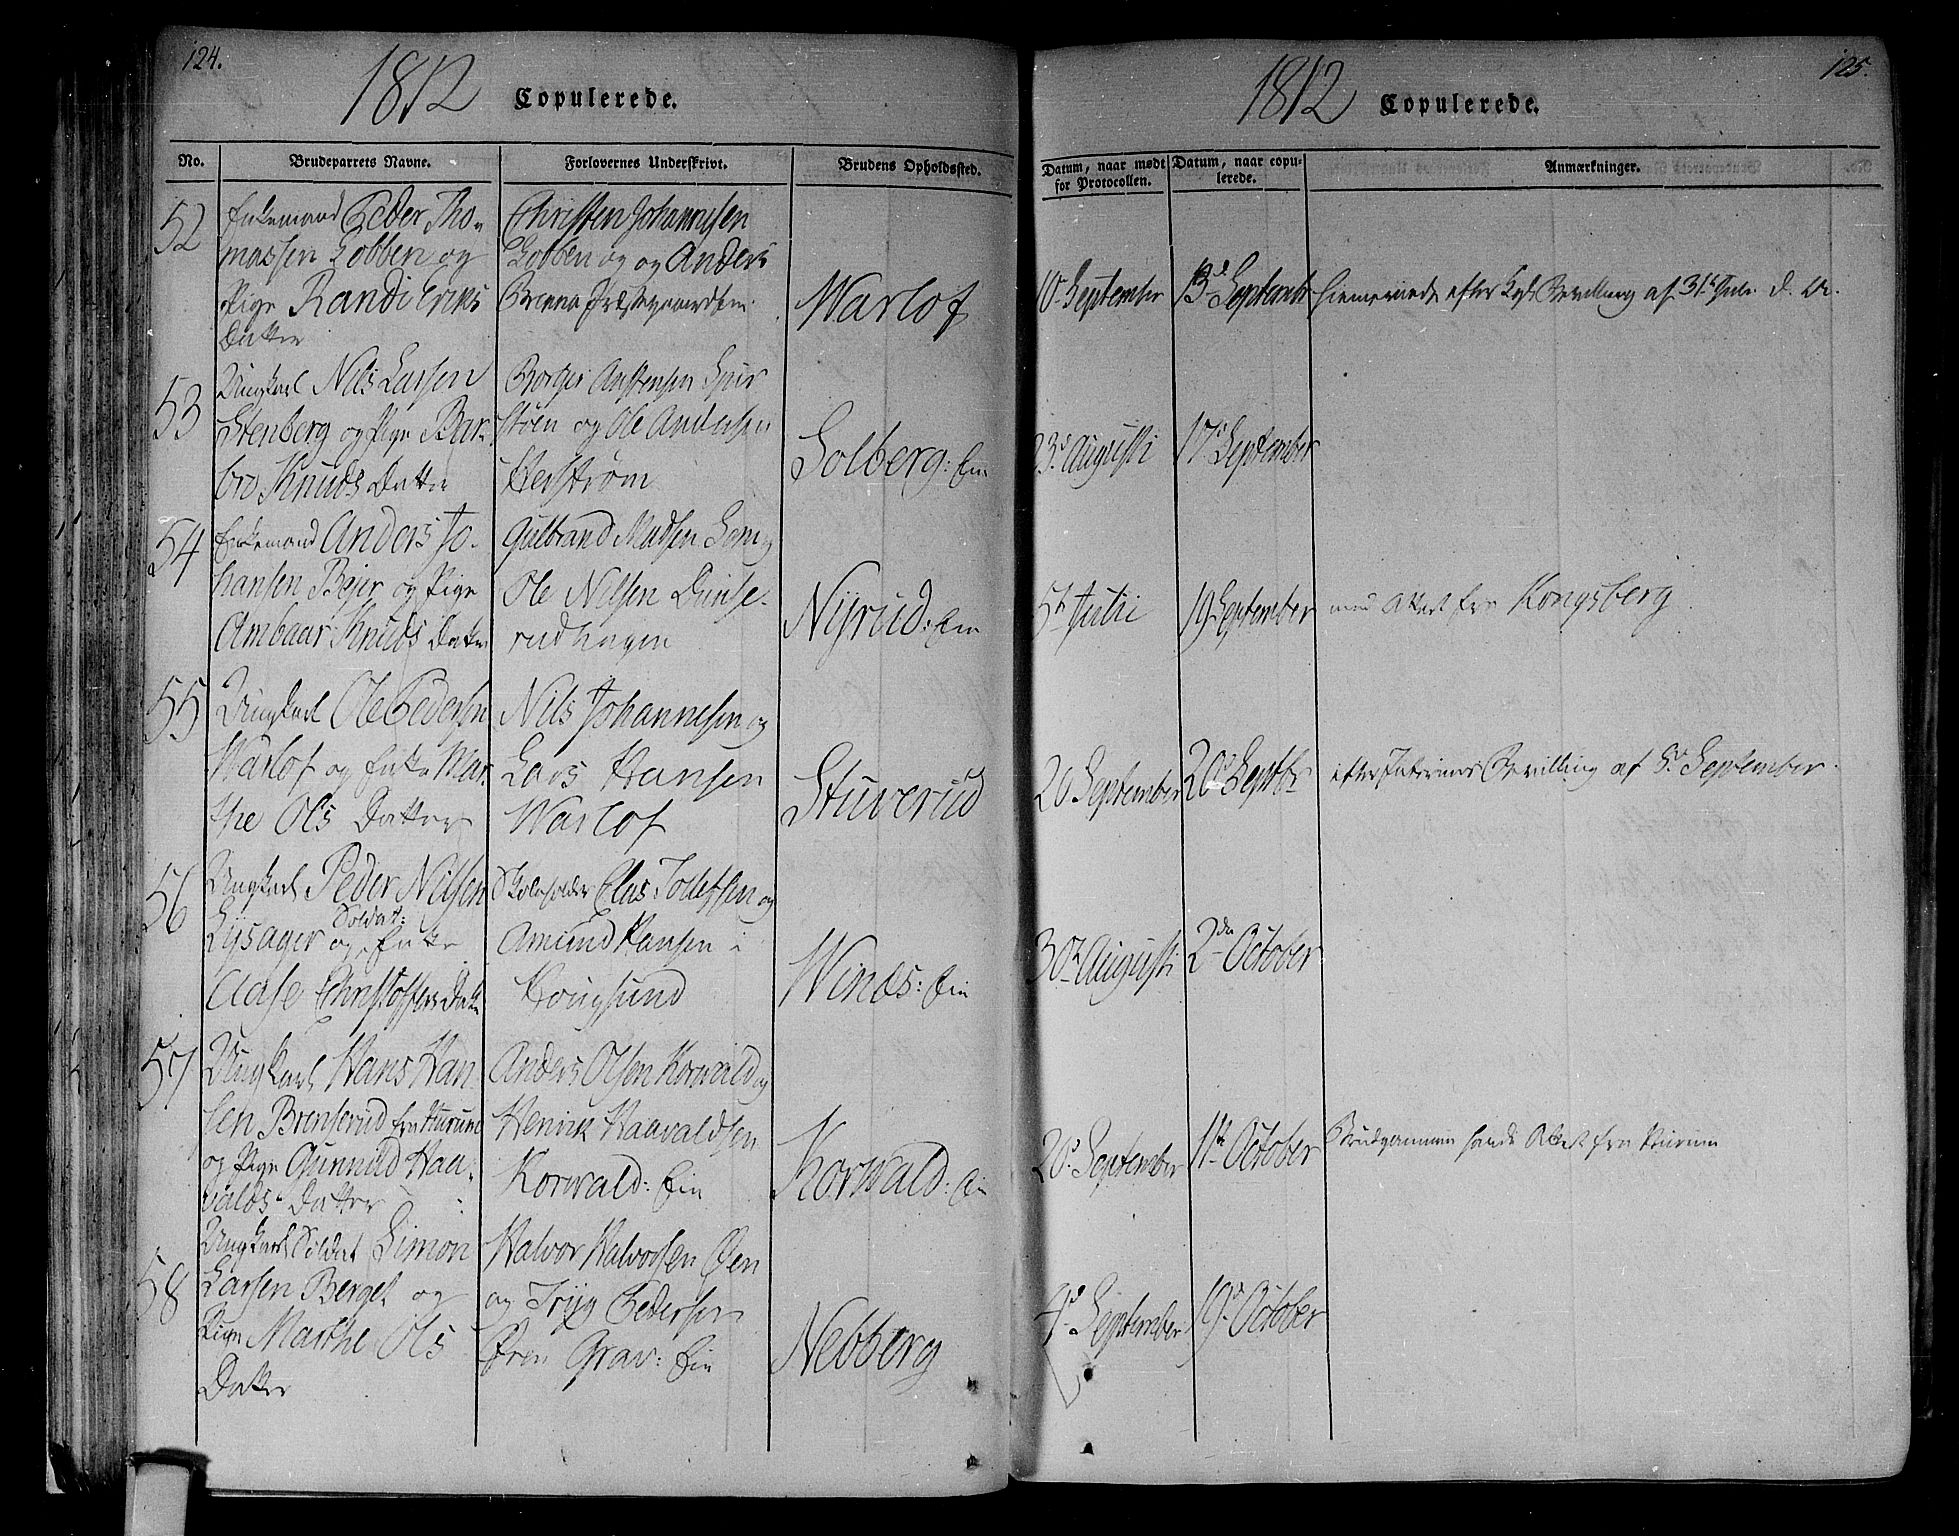 124.
1812 Copulerede.
No. Brudeparrets Navne. Forlovernes Underskrivt. Brudens Opholdssted.
52
Enkemand Peder Tho-
massen Lobben og
Pige Randi Eriks
Datter
Christen Johannesen
Lobben og og Anders
Brenna
Warlof
53
Ungkarl Nils Larsen
Stenberg og Pige Bar-
bro Knuds Datter
Borger Anstensen
og Ole Andersen
Herstrøm
Solberg: Ein
54
Enkemand Anders Jo-
hansen Bejer og Pige
Ambaar Knuds Datter
Gulbrand Madsen Lom og
Ole Nilsen Dunse-
rudhagen
Nyrud: Ein
55
Ungkarl Ole Pedersen
Warlof og Enke Mar-
the Ols Datter
Nils Johannesen og
Lars Hansen
Warlof
Stuverud
56
Ungkarl Peder Nilsen
Lysager og Soldat: Enke
Aase Christoffers Datter
Skoleholder Elias Tollefsen og
Amund Hansen i
Hougsund
Winds: Ein
57
Ungkarl Hans Han-
sen Brenserud fra Hurum
og Pige Gunnild Haa-
valds Datter
Anders Olsen Korwald og
Henrik Haavaldsen
Korwald: Ein
Korwald: Ein
58
Ungkarl Soldat Simon
Larsen Berget og
Pige Marthe Ols
Datter
Halvor Halvorsen Øen
og Tryg Pedersen
Øvre Grav: Ein
Nebberg
125.
1812 Copulerede.
Datum, naar mødt for Protocollen. Datum, naar copu-lerede. Anmærkninger.
10 September 13d September hiemeviede efter Kgl. Bevilling af 31te Juli d. A.
23d Augusti 17d September
5te Julii 19 September med Attest fra Kongsberg
20 September 20d Septbr efter Interims Bevilling af 5d September.
30te Augusti 2den October
20d September 11te October Brudgommen havde Attest fra Hurum
4d September 19d October